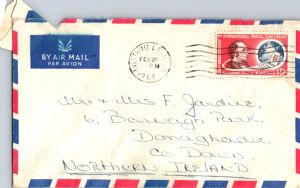 BY AIR MAIL
PAR AVION
FEB 20
PM
1964
INTERNATIONAL POSTAL CONFERENCE
Mr & Mrs F. Jardine,
6, Barnagh Park,
Donaghadee,
Co Down.
NORTHERN IRELAND